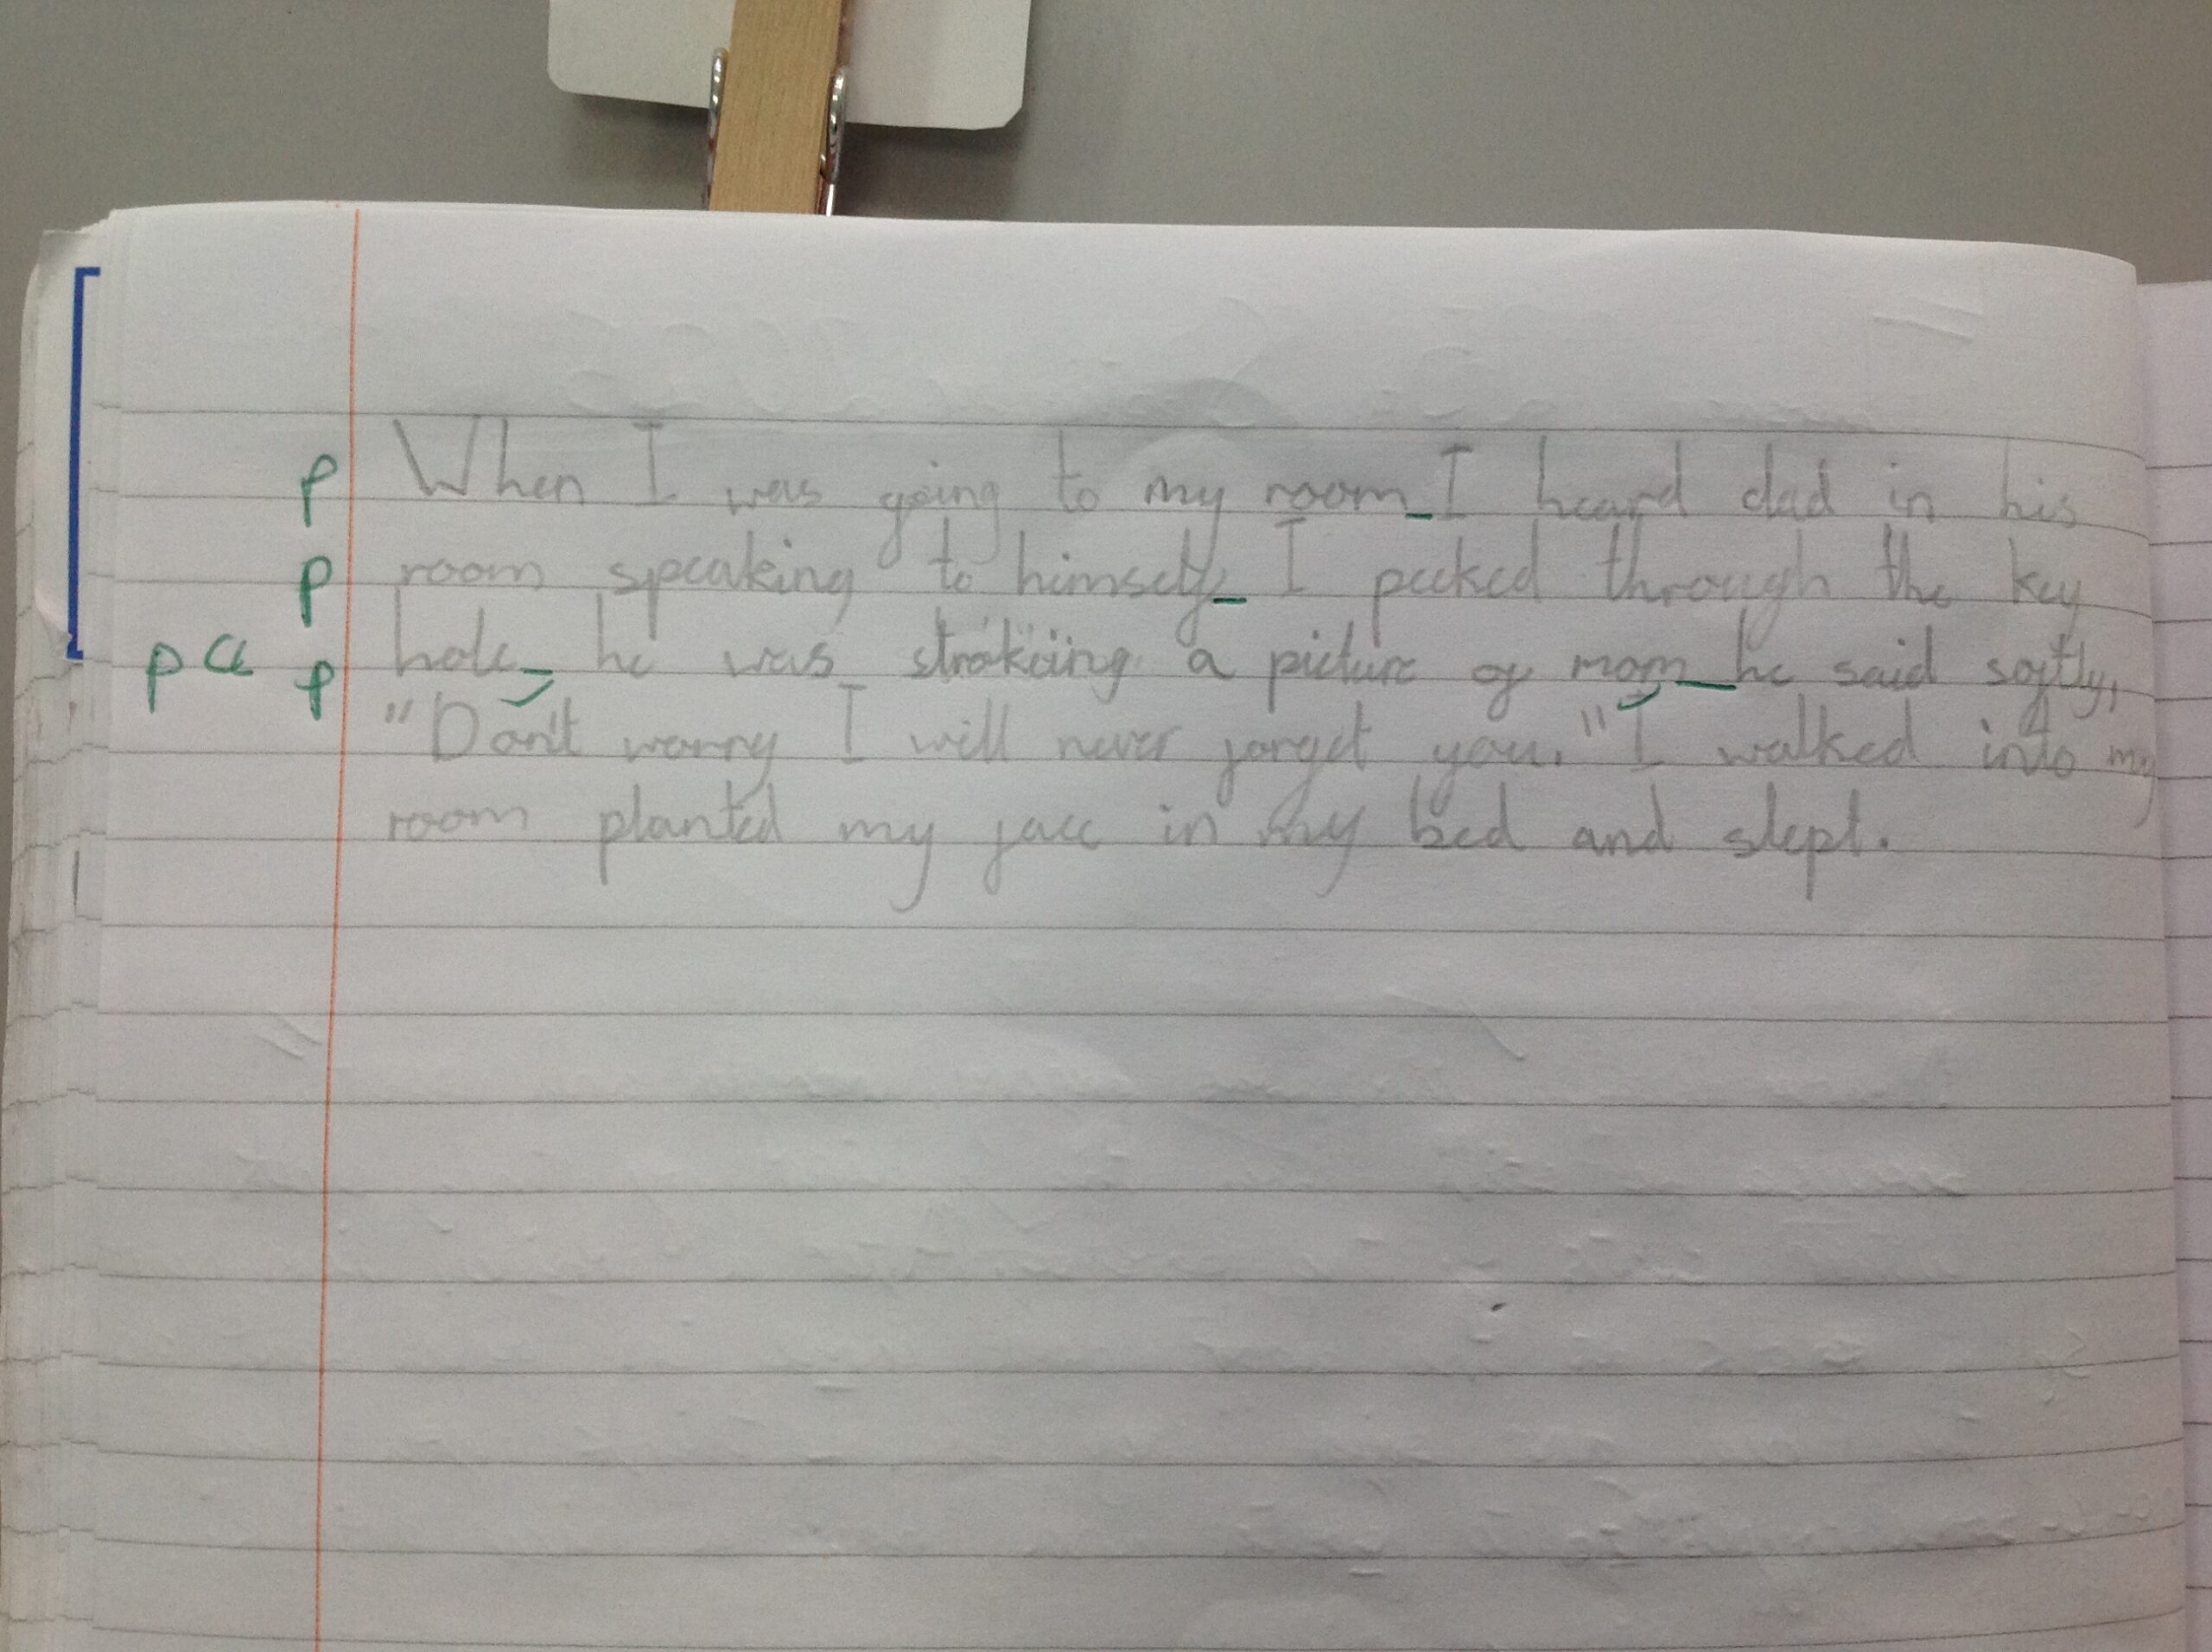 p When I was going to my room_I heard dad in his
p room speaking to himself_ I peeked through the key
p a p hole_ he was strokiing a picture of mom_he said softly,
"Don't worry I will never forget you." I walked into my
room planted my face in my bed and slept.